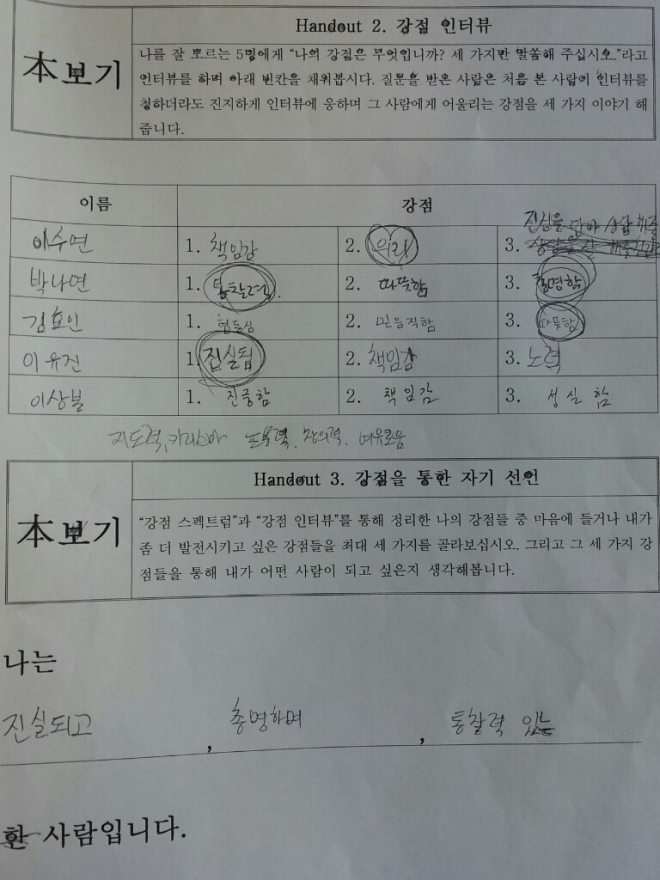 Handout 2. 강점 인터뷰
本보기
나를 잘 모르는 5명에게 “나의 강점은 무엇입니까? 세 가지만 말씀해 주십시오.”라고
인터뷰를 하며 아래 빈칸을 채워봅시다. 질문을 받은 사람은 처음 본 사람이 인터뷰를
청하더라도 진지하게 인터뷰에 응하며 그 사람에게 어울리는 강점을 세 가지 이야기 해
줍니다.
이름 강점
진심을 담아 상담
이수연 1. 책임감 2. 의리 3.
박나연 1. 통찰력 2. 따뜻함 3. 총명함
김효인 1. 협동심 2. 믿음직함 3. 따뜻함
이유진 1. 진실됨 2. 책임감 3. 노력
1. 진중함 2. 책임감 3. 성실함
지도력, 카리스마 창의력, 여유로움
Handout 3. 강점을 통한 자기 선언
本보기
“강점 스펙트럼”과 “강점 인터뷰”를 통해 정리한 나의 강점들 중 마음에 들거나 내가
좀 더 발전시키고 싶은 강점들을 최대 세 가지를 골라보십시오. 그리고 그 세 가지 강
점들을 통해 내가 어떤 사람이 되고 싶은지 생각해봅니다.
나는
진실되고 , 총명하며 , 통찰력 있는
한 사람입니다.